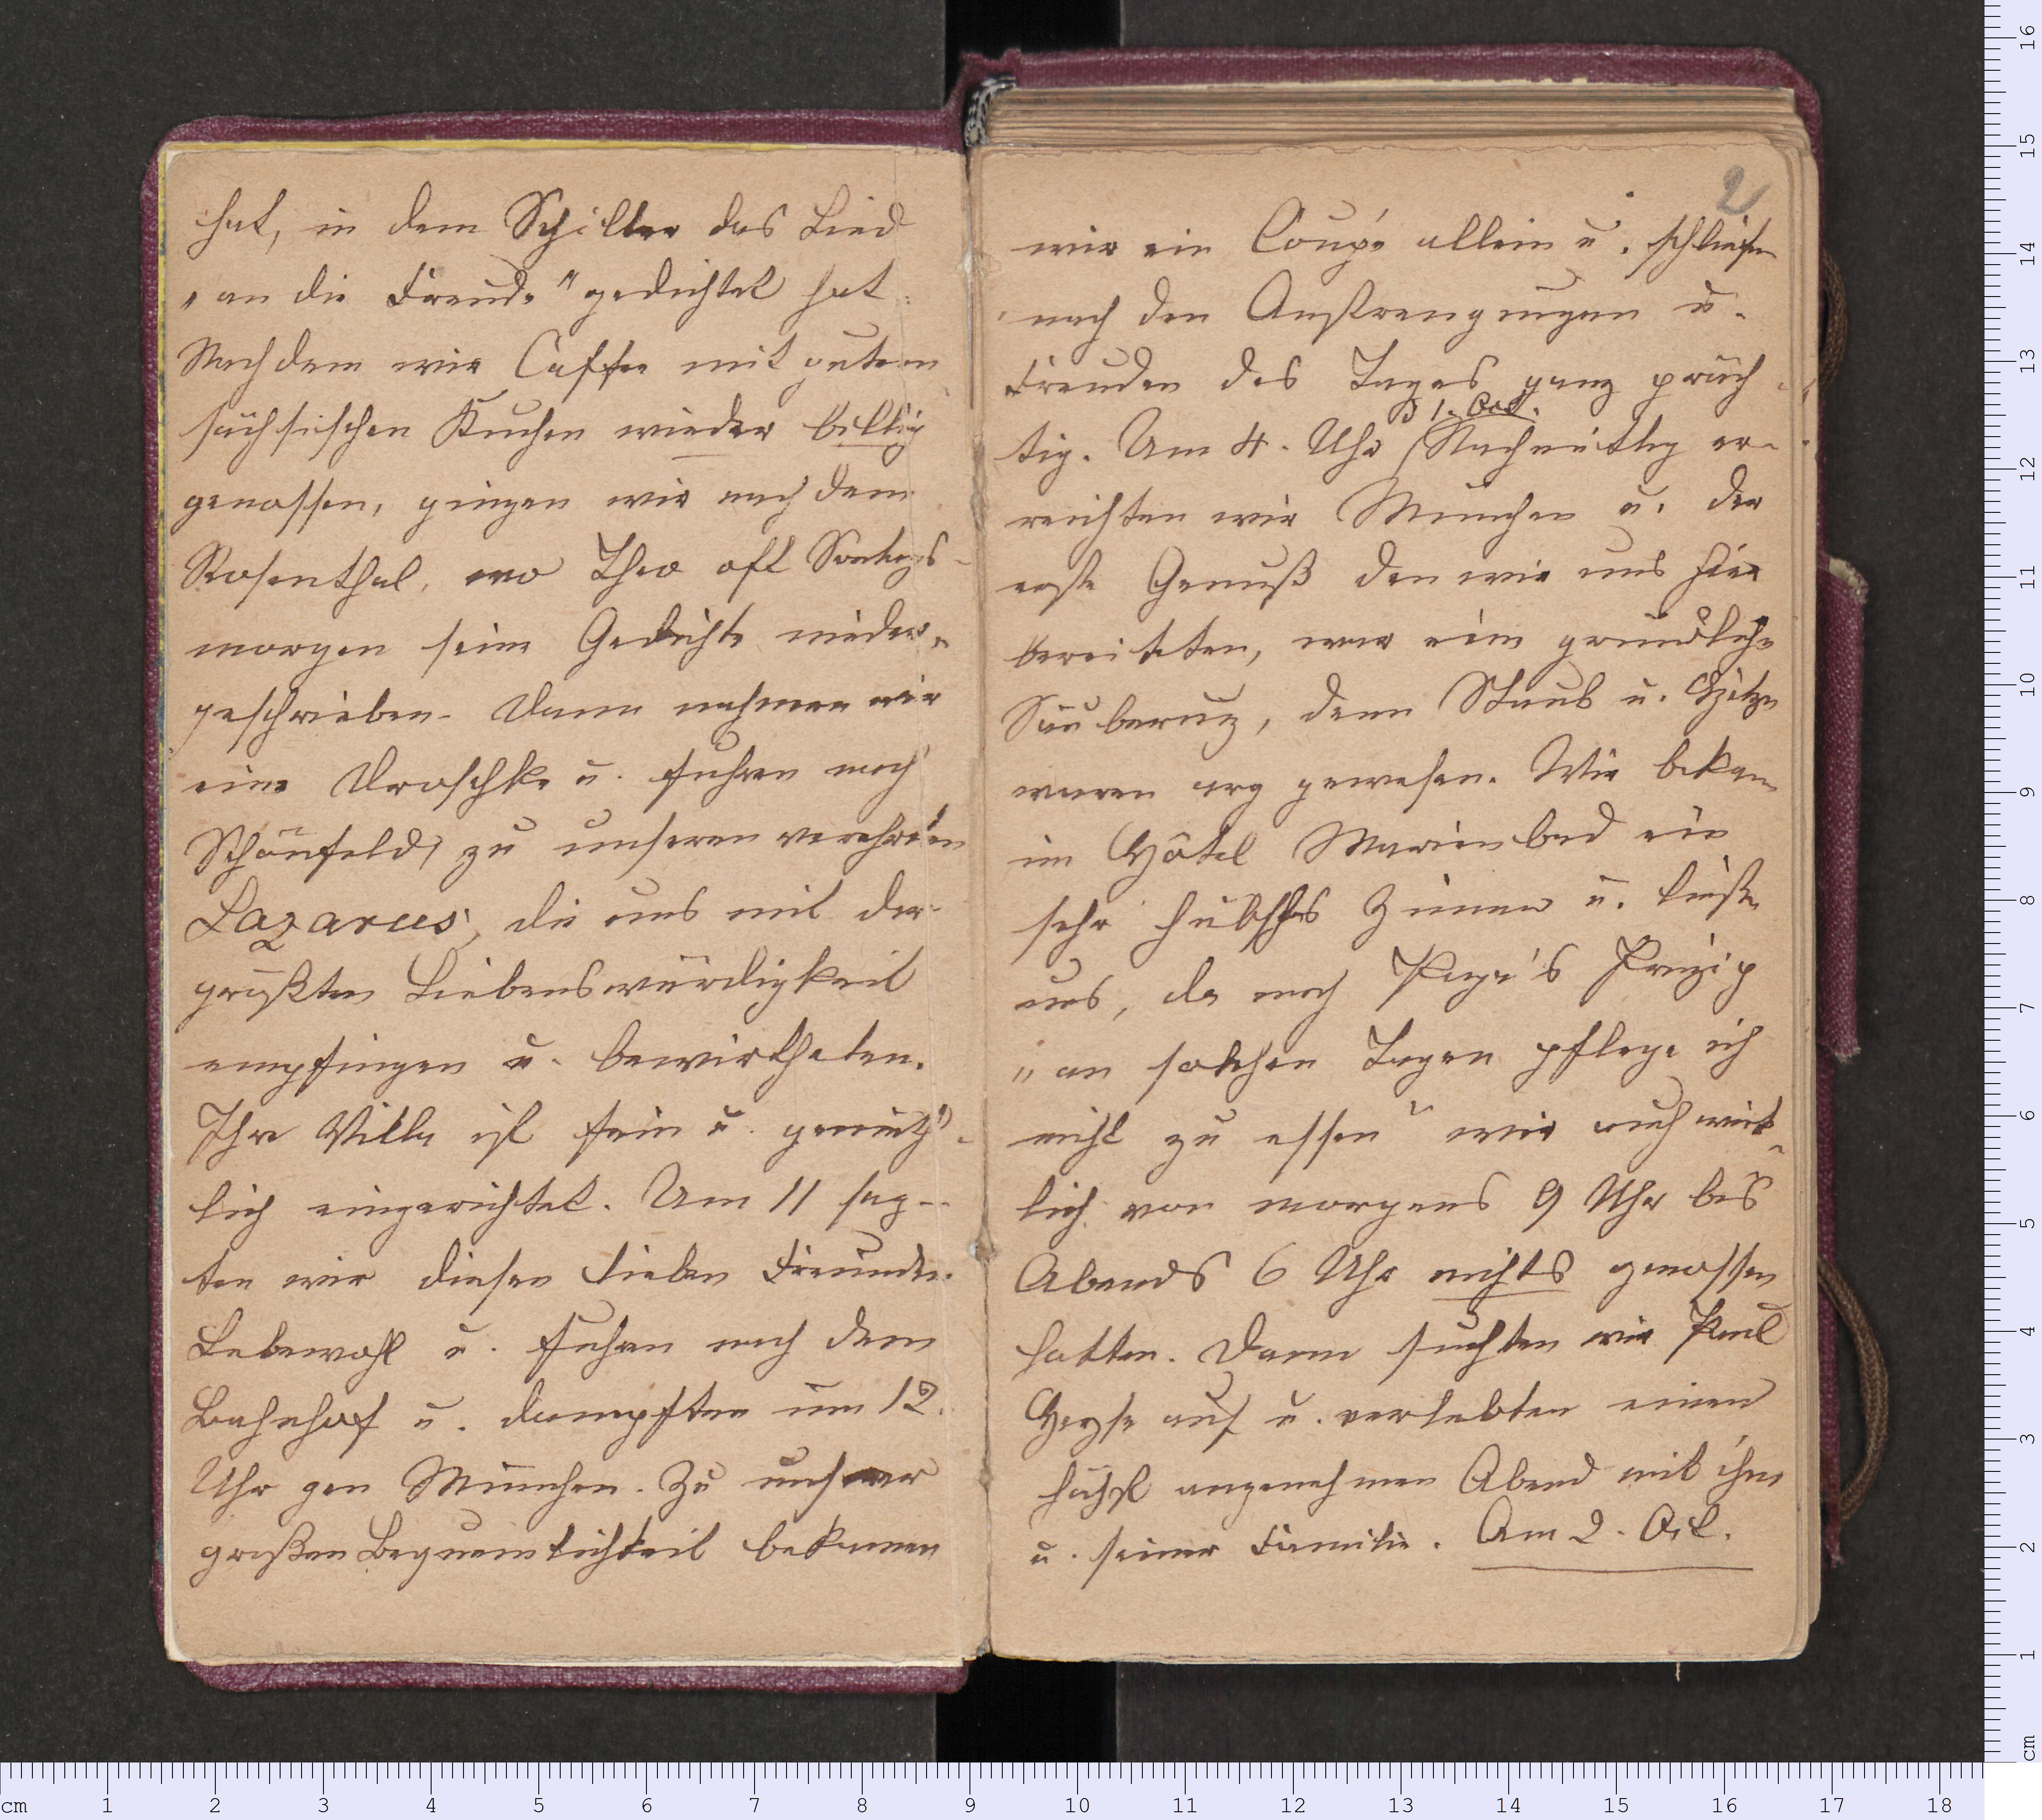 hat, in dem Schiller das Lied
„an die Freude" gedichtet hat.
Nachdem wir Caffee mit gutem
sächsischen Kuchen wieder billig
genossen, gingen wir nach dem
Rosenthal, wo Theo oft Sontags-
morgen seine Gedichte nieder-
geschrieben. Dann nahmen wir
eine Droschke u. fuhren nach
Schönfeld, zu unseren verehrten
Lazarus, die uns mit der
größten Liebenswürdigkeit
empfingen u. bewirtheten.
Ihre Villa ist fein u. gemüth-
lich eingerichtet. Um 11 sag-
ten wir diesen lieben Freunden
Lebewohl u. fuhren nach dem
Bahnhof u. dampften um 12
Uhr gen München. Zu unserer
großen Bequemlichkeit bekamen
2
wir ein Coupé allein u. schliefen
nach den Anstrengungen u.
Freuden des Tages ganz präch-
1. Oct.
tig. Um 4 Uhr Nachmittag er-
reichten wir München u. der
erste Genuß den wir uns hier
bereiteten, war eine gründliche
Säuberung, denn Staub u. Hitze
waren arg gewesen. Wir bekamen
im Hôtel Marienbad ein
sehr hübsches Zimmer u. ließen
uns, da nach Papa's Prinzip
„an solchen Tagen pflege ich
nicht zu essen" wir auch wirk-
lich von morgens 9 Uhr bis
Abends 6 Uhr nichts genossen
hatten. Dann suchten wir Paul
Heyse auf u. verlebten einen
höchst angenehmen Abend mit ihm
u. seiner Familie. Am 2. Oct.